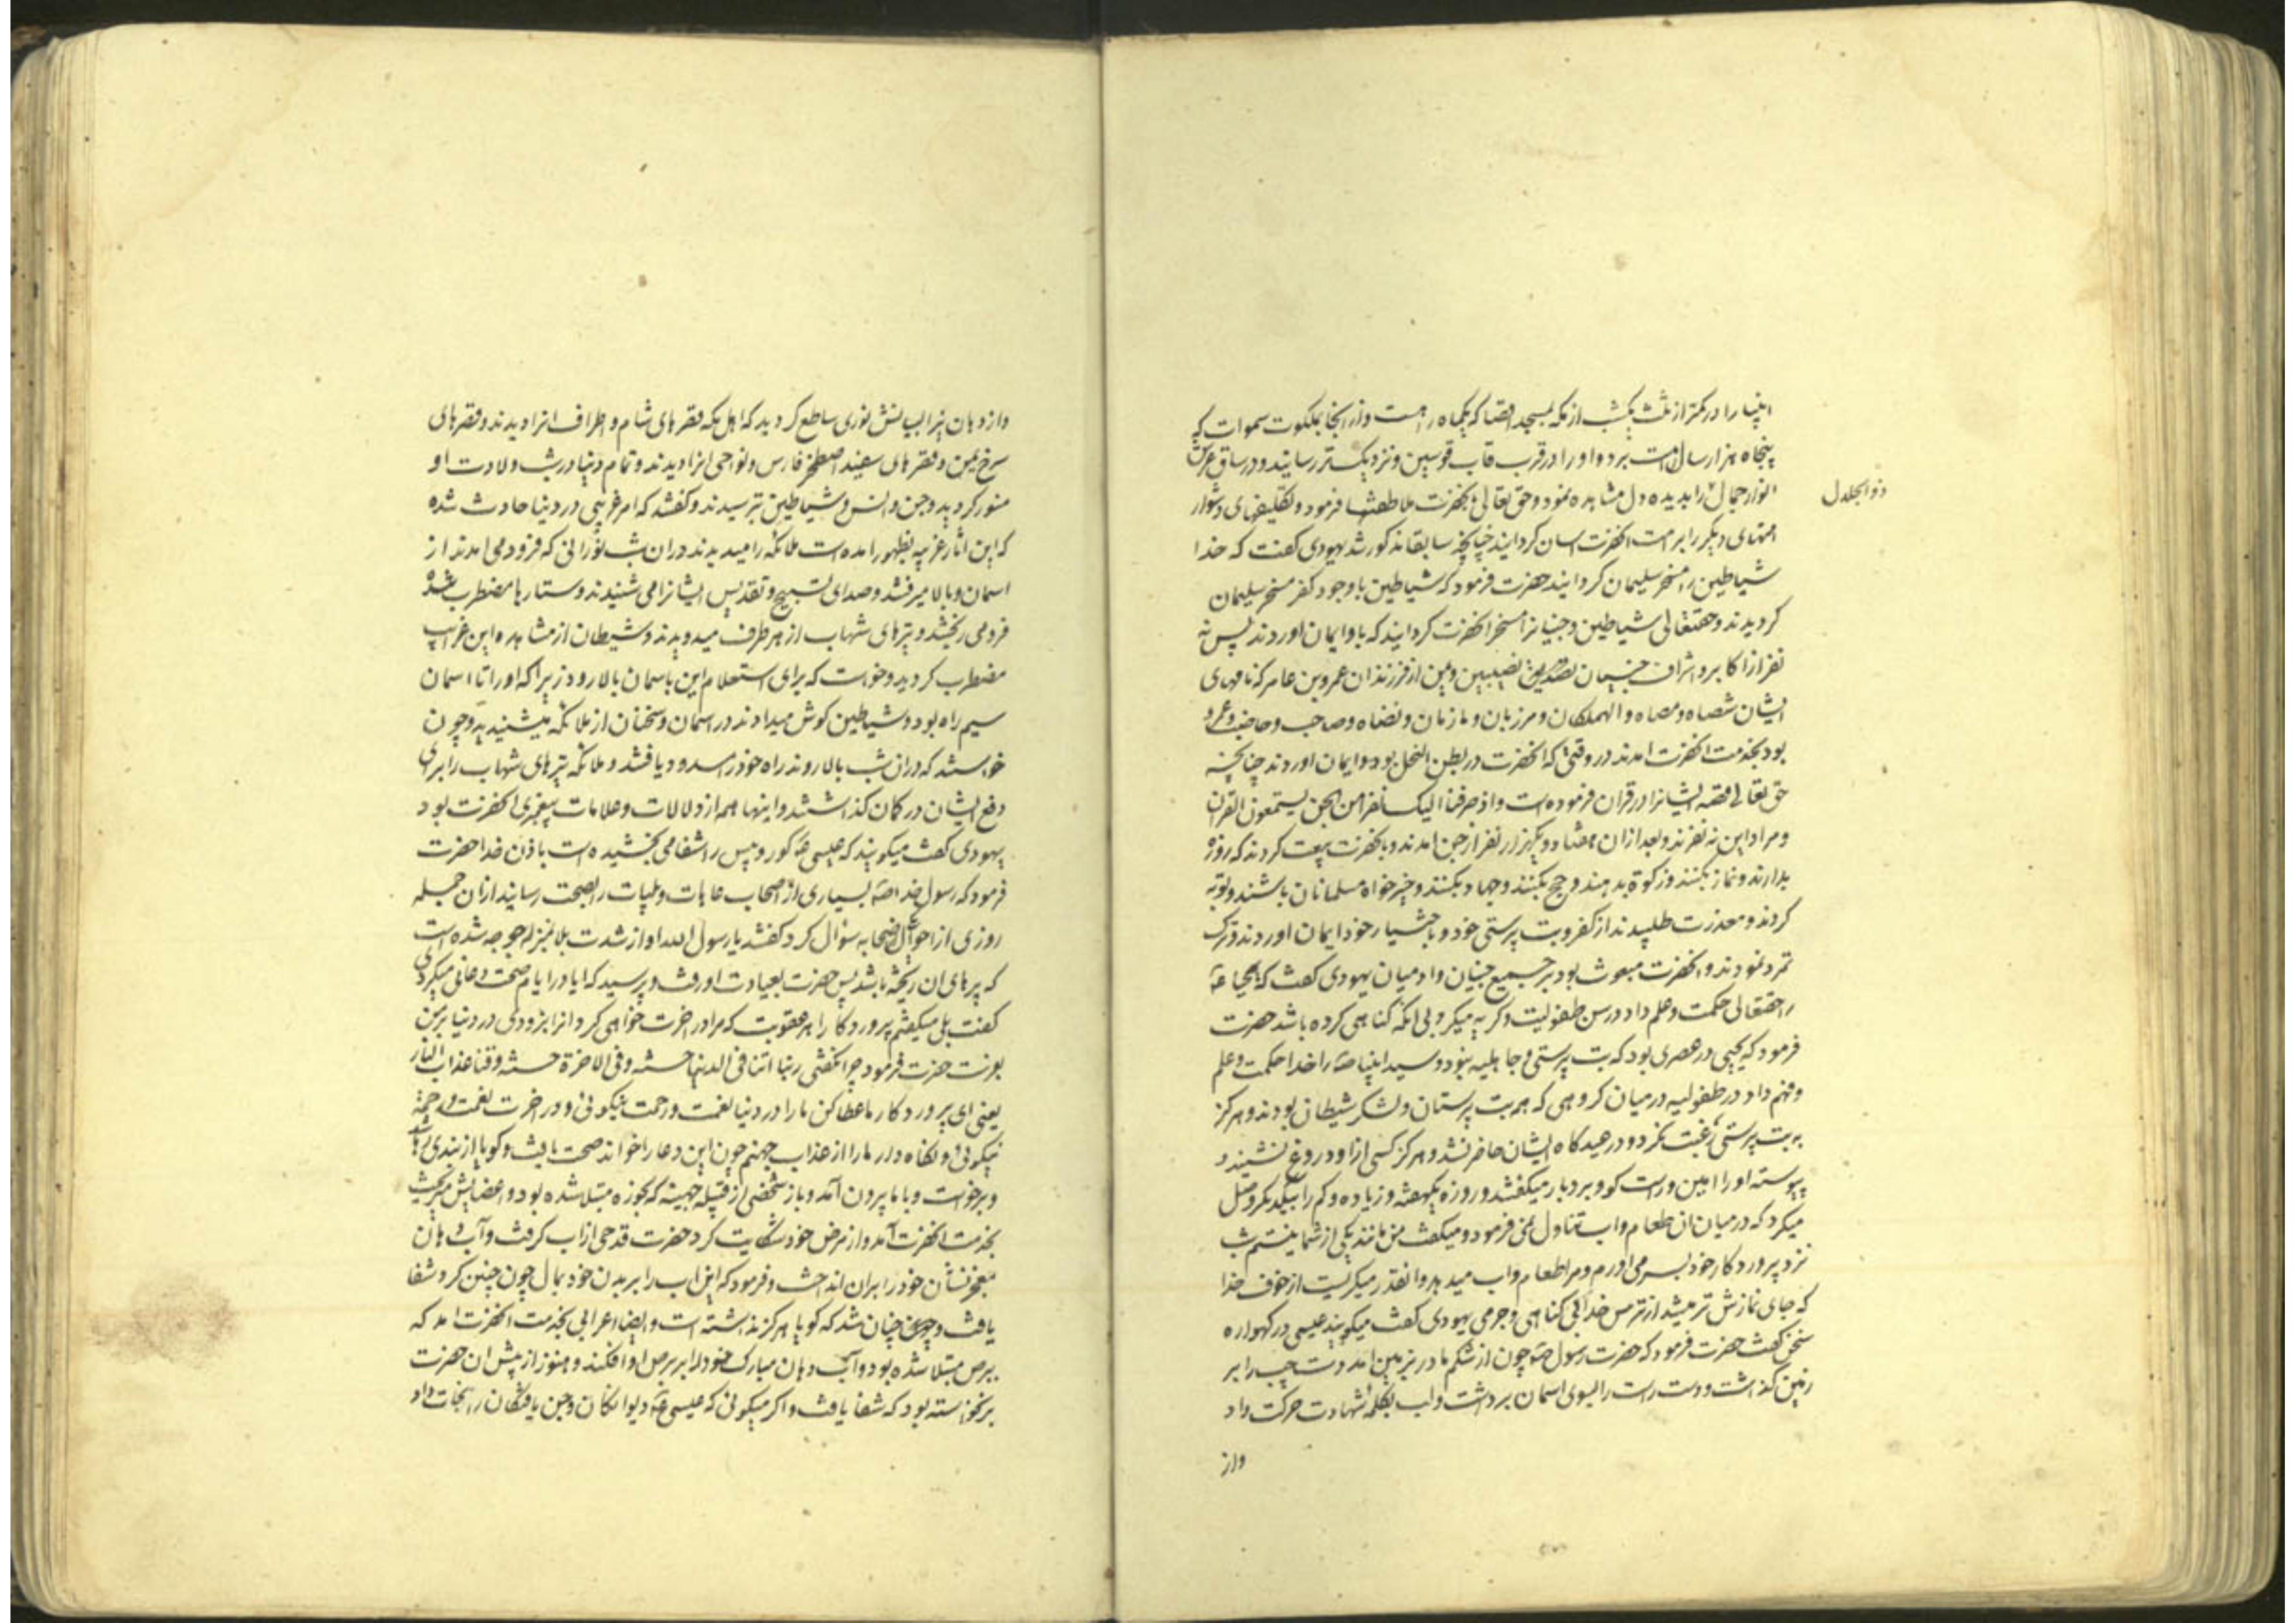 انبیا را در کمتر از ثلث یکشب از مکه بمسجد اقصا که یکماه راهست و از انجا بملکوت سموات که
پنجاه هزار سال راهست برد و او را در قرب قاب قوسین و نزدیکتر رسانید و در ساق عرش
انوار جمال را بدیده دل مشاهده نمود و حق تعالی بانحضرت ملاطفتها فرمود و تکلیفهای دشوار
ذو الجلال
امتهای دیکر را بر امت انحضرت اسان کردانید چنانچه سابقا مذکور شد یهودی کفت که خدا
شیاطین را مسخر سلیمان کردانید حضرت فرمود که شیاطین با وجود کفر مسخر سلیمان
کردیدند و حقتعالی شیاطین و جنیانرا مسخر انحضرت کردانید که باو ایمان اوردند پس نه
نفر از اکابر و اشراف جنیان نصیبین و یمن از فرزندان عمرو بن عامر که نامهای
ایشان شصاه و مصاه و الهملکان و مرزبان و مازمان و نضاه و صاحب و حاضب و عمرو
بود بخدمت انحضرت امدند در وقتی که انحضرت در بطن النخل بود و ایمان اوردند چنانچه
حق تعالی قصه ایشانرا در قران فرموده است و اذ صرفنا الیک نفرا من الجن یستمعون القران
و مراد این نه نفرند و بعد از ان هفتاد و یکهزار نفر از جن امدند و بانحضرت بیعت کردند که روزه
بدارند و نماز بکنند و زکوة بدهند و حج بکنند و جهاد بکنند و خیرخواه مسلمانان باشند و توبه
کردند و معذرت طلبیدند از کفر و بت پرستی خود و باختیار خود ایمان اوردند و ترک
تمرد نمودند و انحضرت مبعوث بود بر جمیع جنیان و ادمیان یهودی کفت که یحیا ع
را حقتعالی حکمت و علم داد در سن طفولیت و کریه میکرد بی انکه کناهی کرده باشد حضرت
فرمود که یحیی در عصری بود که بت پرستی و جاهلیه نبود و سید انبیا ص را خدا حکمت و علم
و فهم داد در طفولیه در میان کروهی که همه بت پرستان و لشکر شیطان بودند و هرکز
به بت پرستی رغبت نکرد و در عیدکاه ایشان حاضر نشد و هرکز کسی از او دروغ نشنید و
پیوسته او را امین و راست کو و بردبار میکفتند و روزه یکهفته و زیاده و کم را بیکدیکر وصل
میکرد که در میان ان طعام و اب تناول نمی فرمود و میکفت من مانند یکی از شما نیستم شب
نزد پروردکار خود بسر می اورم و مرا طعام و اب میدهد و انقدر میکریست از خوف خدا
که جای نمازش تر میشد از ترس خدا بی کناهی و جرمی یهودی کفت میکویند عیسی در کهواره
سخن کفت حضرت فرمود که حضرت رسول ص چون از شکم مادر بزمین امد دست چپ را بر
زمین کذاشت و دست راست را بسوی اسمان برداشت و لب بکلمه شهادت حرکت داد
واز
و از دهان نور ساطع کردید که اهل مکه قصرهای شام و اطراف انرا دیدند و قصرهای
سرخ یمن و قصرهای سفید اصطخر فارس و نواحی انرا دیدند و تمام دنیا در شب ولادت او
منور کردید و جن و انس و شیاطین ترسیدند و کفتند که امر غریبی در دنیا حادث شده
که این اثار غریبه بظهور امده است ملائکه را میدیدند در ان شب نورانی که فرود می امدند از
اسمان و بالا میرفتند و صدای تسبیح و تقدیس ایشانرا می شنیدند و ستارها مضطرب شده
فرو می ریختند و تیرهای شهاب از هر طرف میدویدند و شیطان از مشاهده این غرایب
مضطرب کردید و خواست که برای استعلام این باسمان بالا رود زیرا که او را تا اسمان
سیم راه بود و شیاطین کوش میدادند در اسمان و سخنان از ملائکه میشنیدند و چون
خواستند که در ان شب بالا روند راه خود را مسدود یافتند و ملائکه تیرهای شهاب را برای
دفع ایشان در کمان کذاشتند و اینها همه از دلالات و علامات پیغمبری انحضرت بود
یهودی کفت میکویند که عیسی ع کور و پیس را شفا می بخشیده است باذن خدا حضرت
فرمود که رسول خدا ص بسیاری از اصحاب عاهات و بلیات را بصحت رسانید از ان جمله
روزی از احوال صحابه سؤال کرد کفتند یا رسول الله او از شدت بلا بمنزله جوجه شده است
که پرهای ان ریخته باشد پس حضرت بعیادت او رفت و پرسید که ایا در ایام صحت دعائی میکردی
کفت بلی میکفتم پروردکارا هر عقوبت که مرا در اخرت خواهی کرد انرا بزودی در دنیا بر من
بفرست حضرت فرمود چرا نکفتی ربنا اتنا فی الدنیا حسنه و فی الاخرة حسنه و قنا عذاب النار
یعنی ای پروردکار ما عطا کن ما را در دنیا نعمت و رحمت نیکوئی و در اخرت نعمت و رحمة
نیکوئی و نکاه دار ما را از عذاب جهنم چون این دعا را خواند صحت یافت و کویا از بندی رها شد
و برخواست و با ما بیرون آمد و باز شخصی از قبیله جهینه که بخوره مبتلا شده بود و اعضایش میریخت
بخدمت انحضرت آمد و از مرض خود شکایت کرد حضرت قدحی از اب کرفت و آب دهان
معجز نشان خود را بر ان انداخت و فرمود که این اب را بر بدن خود بمال چون چنین کرد شفا
یافت و چنان شد که کویا هرکز نداشته است و ایضا اعرابی بخدمت انحضرت امد که
ببرص مبتلا شده بود و آب دهان مبارک خود را بر برص او افکند و هنوز از پیش ان حضرت
برنخواسته بود که شفا یافت و اکر میکوئی که عیسی ع دیوانکان و جن یافتکان را نجات داد